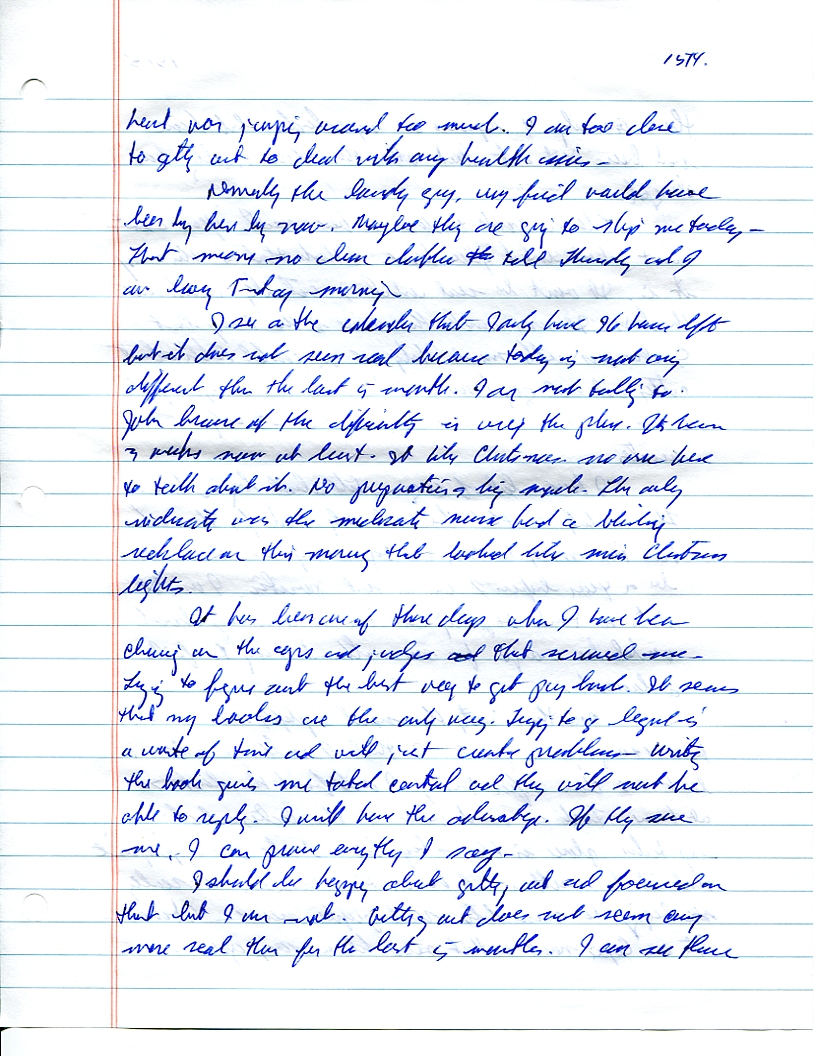 1574.
heart was jumping around too much. I am too close
to getting out to deal with any health issues -
Normally the laundry guy, my friend would have
been by here by now. Maybe they are going to skip me today -
That means no clean clothes till Thursday and I
am leaving Friday morning
I see on the calendar that I only have 96 hours left
but it does not seem real because today is not any
different than the last 15 months. I am not talking to
John because of the difficulty in using the phone. It's been
3 weeks now at least. It like Christmas no one here
to talk about it. No preparation big much. The only
indicate was the medicate nurse had a blinking
necklace on this morning that looked like mini Christmas
lights.
It has been one of those days when I have been
chewing on the cops and judges that screwed me -
Trying to figure out the best way to get pay back. It seems
that my books are the only way. Trying to go legal is
a waste of time and will just create problems - Writing
the book gives me total control and they will not be
able to reply. I will have the advantage. If they sue
me, I can prove everything I say -
I should be happy about getting out and focused on
that but I am not. Getting out does not seem any
more real than for the last 15 months. I can see there